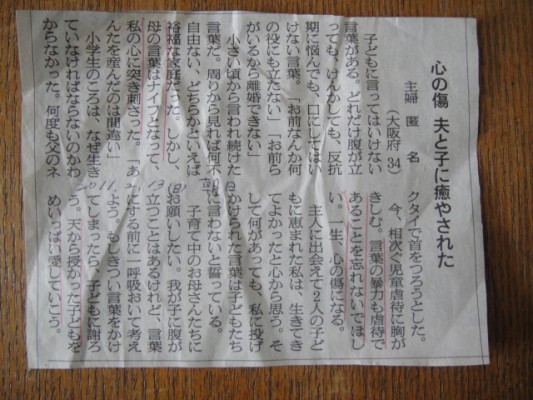 心の傷 夫と子に癒やされた
主婦 匿名
(大阪府 34)
子どもに言ってはいけない
言葉がある。どれだけ腹が立
っても、けんかしても、反抗
期に悩んでも、口にしてはい
けない言葉。「お前なんか何
の役にも立たない」「お前ら
がいるから離婚できない」
小さい頃から言われ続けた
言葉だ。周りから見れば何不
自由ない、どちらかといえば
裕福な家庭だった。しかし、
母の言葉はナイフとなって、
私の心に突き刺さった。「あ
んたを産んだのは間違い」
小学生のころは、なぜ生き
ていなければならないのかわ
からなかった。何度も父のネ
クタイで首をつろうとした。
今、相次ぐ児童虐待に胸が
きしむ。言葉の暴力も虐待で
あることを忘れないでほし
い。一生、心の傷になる。
主人に出会えて2人の子ど
もに恵まれた私は、生きてき
てよかったと心から思う。そ
して何があっても、私に投げ
かけられた言葉は子どもたち
に言わないと誓っている。
子育て中のお母さんたちに
お願いしたい。我が子に腹が
立つことはあるけれど、言葉
にする前に一呼吸おいて考え
よう。もしきつい言葉をかけ
てしまったら、子どもに謝ろ
う。天から授かった子どもを
めいっぱい愛していこう。
2011. 2. 13 (日)